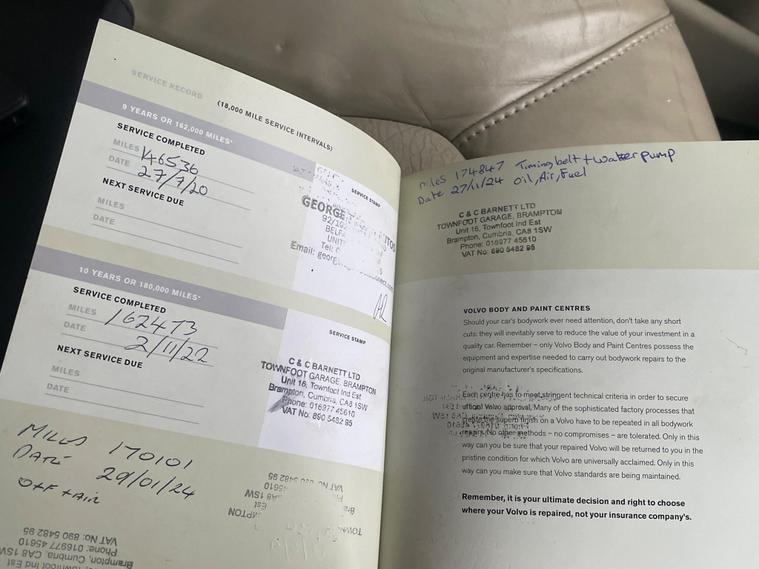 SERVICE RECORD (18,000 MILE SERVICE INTERVALS)
9 YEARS OR 162,000 MILES*
SERVICE COMPLETED
MILES 146536
DATE 27/7/20
NEXT SERVICE DUE
MILES
DATE
SERVICE STAMP
GEORGE
Email:
10 YEARS OR 180,000 MILES*
SERVICE COMPLETED
MILES 162473
DATE 2/11/22
NEXT SERVICE DUE
MILES
DATE
SERVICE STAMP
C & C BARNETT LTD
TOWNFOOT GARAGE, BRAMPTON
Unit 16, Townfoot Ind Est
Brampton, Cumbria. CA8 1SW
Phone: 016977 45610
VAT No: 890 5482 95
MILES 170101
DATE 29/01/24
Brampton, Cumbria, CA8 1SW
Phone: 016977 45610
VAT No: 890 5482 95
Miles 174847 Timing belt + water pump
Date 27/11/24 Oil, Air, Fuel
C & C BARNETT LTD
TOWNFOOT GARAGE, BRAMPTON
Unit 16, Townfoot Ind Est
Brampton, Cumbria. CA8 1SW
Phone: 016977 45610
VAT No: 890 5482 95
VOLVO BODY AND PAINT CENTRES
Should your car's bodywork ever need attention, don't take any short
cuts: they will inevitably serve to reduce the value of your investment in a
quality car. Remember – only Volvo Body and Paint Centres possess the
equipment and expertise needed to carry out bodywork repairs to the
original manufacturer's specifications.
Each centre has to meet stringent technical criteria in order to secure
official Volvo approval. Many of the sophisticated factory processes that
finish on a Volvo have to be repeated in all bodywork
repairs. No other methods – no compromises – are tolerated. Only in this
way can you be sure that your repaired Volvo will be returned to you in the
pristine condition for which Volvo are universally acclaimed. Only in this
way can you make sure that Volvo standards are being maintained.
Remember, it is your ultimate decision and right to choose
where your Volvo is repaired, not your insurance company's.